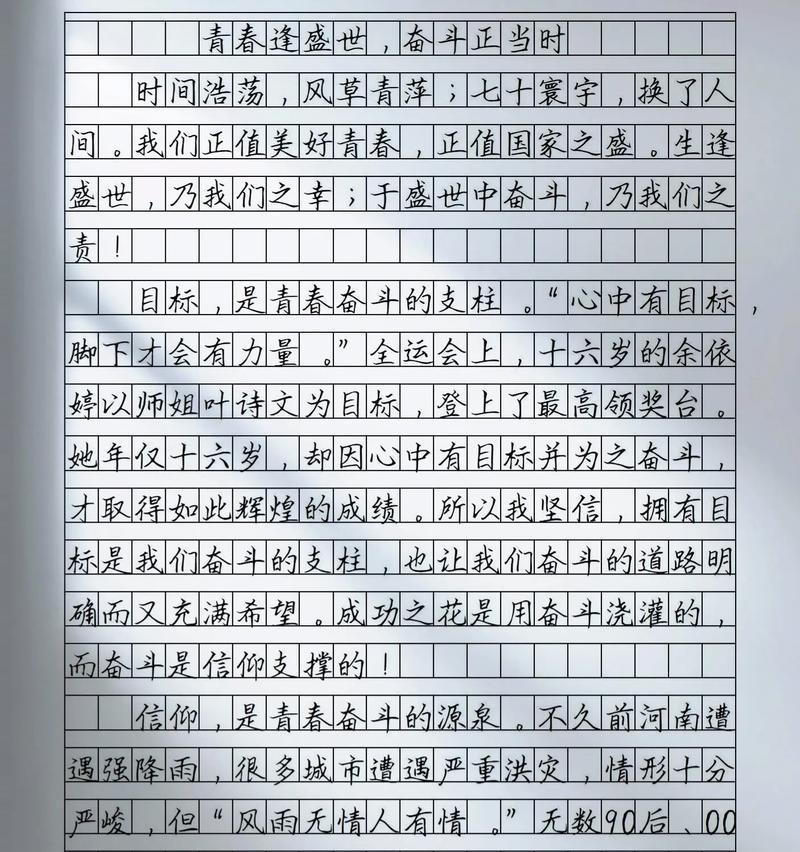 青春逢盛世，奋斗正当时
时间浩荡，风草青萍；七十寰宇，换了人
间。我们正值美好青春，正值国家之盛。生逢
盛世，乃我们之幸；于盛世中奋斗，乃我们之
责！
目标，是青春奋斗的支柱。“心中有目标，
脚下才会有力量。”全运会上，十六岁的余依
婷以师姐叶诗文为目标，登上了最高领奖台。
她年仅十六岁，却因心中有目标并为之奋斗，
才取得如此辉煌的成绩。所以我坚信，拥有目
标是我们奋斗的支柱，也让我们奋斗的道路明
确而又充满希望。成功之花是用奋斗浇灌的，
而奋斗是信仰支撑的！
信仰，是青春奋斗的源泉。不久前河南遭
遇强降雨，很多城市遭遇严重洪灾，情形十分
严峻，但“风雨无情人有情。”无数90后、00